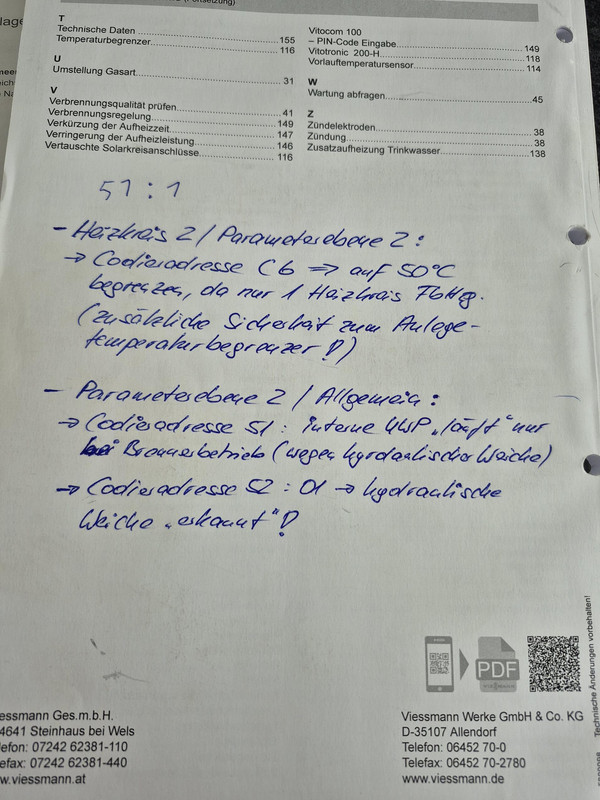 T
Technische Daten 155
Temperaturbegrenzer 116
U
Umstellung Gasart 31
V
Verbrennungsqualität prüfen 41
Verbrennungsregelung 149
Verkürzung der Aufheizzeit 147
Verringerung der Aufheizleistung 146
Vertauschte Solarkreisanschlüsse 116
Vitocom 100
– PIN-Code Eingabe 149
Vitotronic 200-H 118
Vorlauftemperatursensor 114
W
Wartung abfragen 45
Z
Zündelektroden 38
Zündung 38
Zusatzaufheizung Trinkwasser 138
51 : 1
– Heizkreis 2 / Parameterebene 2 :
→ Codieradresse C6 ⇒ auf 50°C
begrenzen, da nur 1 Heizkreis FbHzg.
(zusätzliche Sicherheit zum Anlage-
temperaturbegrenzer !)
– Parameterebene 2 / Allgemein :
→ Codieradresse 51 : interne UWP „läuft" nur
bei Brennerbetrieb (wegen hydraulischer Weiche)
→ Codieradresse 52 : 01 → hydraulische
Weiche „erkannt" !
PDF
Technische Änderungen vorbehalten!
iessmann Ges.m.b.H.
4641 Steinhaus bei Wels
lefon: 07242 62381-110
efax: 07242 62381-440
w.viessmann.at
Viessmann Werke GmbH & Co. KG
D-35107 Allendorf
Telefon: 06452 70-0
Telefax: 06452 70-2780
www.viessmann.de